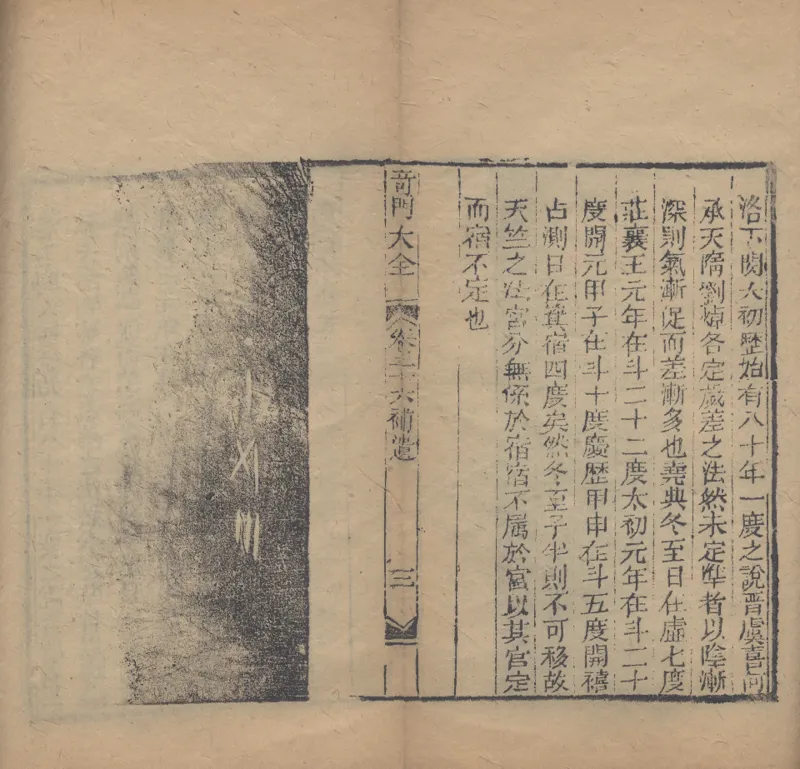 洛下閎太初歷始有八十年一度之說晋虞喜何
承天隋劉焯各定歲差之法然未定準者以陰漸
深則氣漸促而差漸多也堯典冬至日在虛七度
莊襄王元年在斗二十二度太初元年在斗二十
度開元甲子在斗十度慶歷甲申在斗五度開禧
占測日在箕宿四度矣然冬至子半則不可移故
天竺之法宮分無係於宿宿不属於宮以其宮定
而宿不定也
竒門大全
卷二十六補遺
三